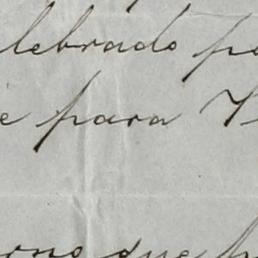 lebrado p
e para
rno que h